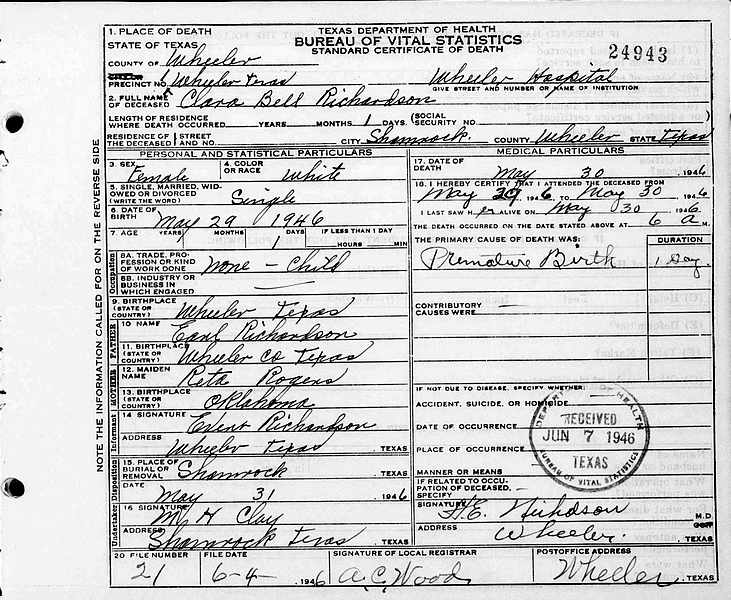 1. PLACE OF DEATH
TEXAS DEPARTMENT OF HEALTH
BUREAU OF VITAL STATISTICS
STANDARD CERTIFICATE OF DEATH
24943
STATE OF TEXAS
COUNTY OF Wheeler
PRECINCT NO. 1 Wheeler Texas Wheeler Hospital
GIVE STREET AND NUMBER OR NAME OF INSTITUTION
2. FULL NAME OF DECEASED Clara Bell Richardson
LENGTH OF RESIDENCE WHERE DEATH OCCURRED YEARS MONTHS 1 DAYS. (SOCIAL SECURITY NO.
RESIDENCE OF THE DECEASED STREET AND NO. CITY Shamrock. COUNTY Wheeler STATE Texas
PERSONAL AND STATISTICAL PARTICULARS
3. SEX Female
4. COLOR OR RACE White
5. SINGLE, MARRIED, WIDOWED OR DIVORCED (WRITE THE WORD) Single
6. DATE OF BIRTH May 29 1946
7. AGE YEARS MONTHS 1 DAYS IF LESS THAN 1 DAY HOURS MIN
Occupation
8A. TRADE, PROFESSION OR KIND OF WORK DONE None - Child
8B. INDUSTRY OR BUSINESS IN WHICH ENGAGED
9. BIRTHPLACE (STATE OR COUNTRY) Wheeler Texas
FATHER
10 NAME Earl Richardson
11. BIRTHPLACE (STATE OR COUNTRY) Wheeler Co Texas
MOTHER
12. MAIDEN NAME Reta Rogers
13. BIRTHPLACE (STATE OR COUNTRY) Oklahoma
Informant
14 SIGNATURE Richardson
ADDRESS Wheeler Texas TEXAS
Disposition
15. PLACE OF BURIAL OR REMOVAL Shamrock TEXAS
DATE May 31 1946
Undertaker
16 SIGNATURE Clay
ADDRESS Shamrock Texas TEXAS
MEDICAL PARTICULARS
17. DATE OF DEATH May 30 1946
18. I HEREBY CERTIFY THAT I ATTENDED THE DECEASED FROM
May 29 1946 TO May 30 1946
I LAST SAW H er ALIVE ON May 30 1946
THE DEATH OCCURRED ON THE DATE STATED ABOVE AT 6 a M.
THE PRIMARY CAUSE OF DEATH WAS:
DURATION
Premature Birth 1 Day
CONTRIBUTORY CAUSES WERE:
IF NOT DUE TO DISEASE, SPECIFY WHETHER:
ACCIDENT, SUICIDE, OR HOMICIDE
DATE OF OCCURRENCE
PLACE OF OCCURRENCE
MANNER OR MEANS
IF RELATED TO OCCUPATION OF DECEASED, SPECIFY
SIGNATURE H.E. Nicholson M.D.
ADDRESS Wheeler. TEXAS
DEPARTMENT OF HEALTH
RECEIVED
JUN 7 1946
TEXAS
BUREAU OF VITAL STATISTICS
20 FILE NUMBER 21
FILE DATE 6-4- 1946
SIGNATURE OF LOCAL REGISTRAR A.C. Wood
POSTOFFICE ADDRESS Wheeler TEXAS
NOTE THE INFORMATION CALLED FOR ON THE REVERSE SIDE